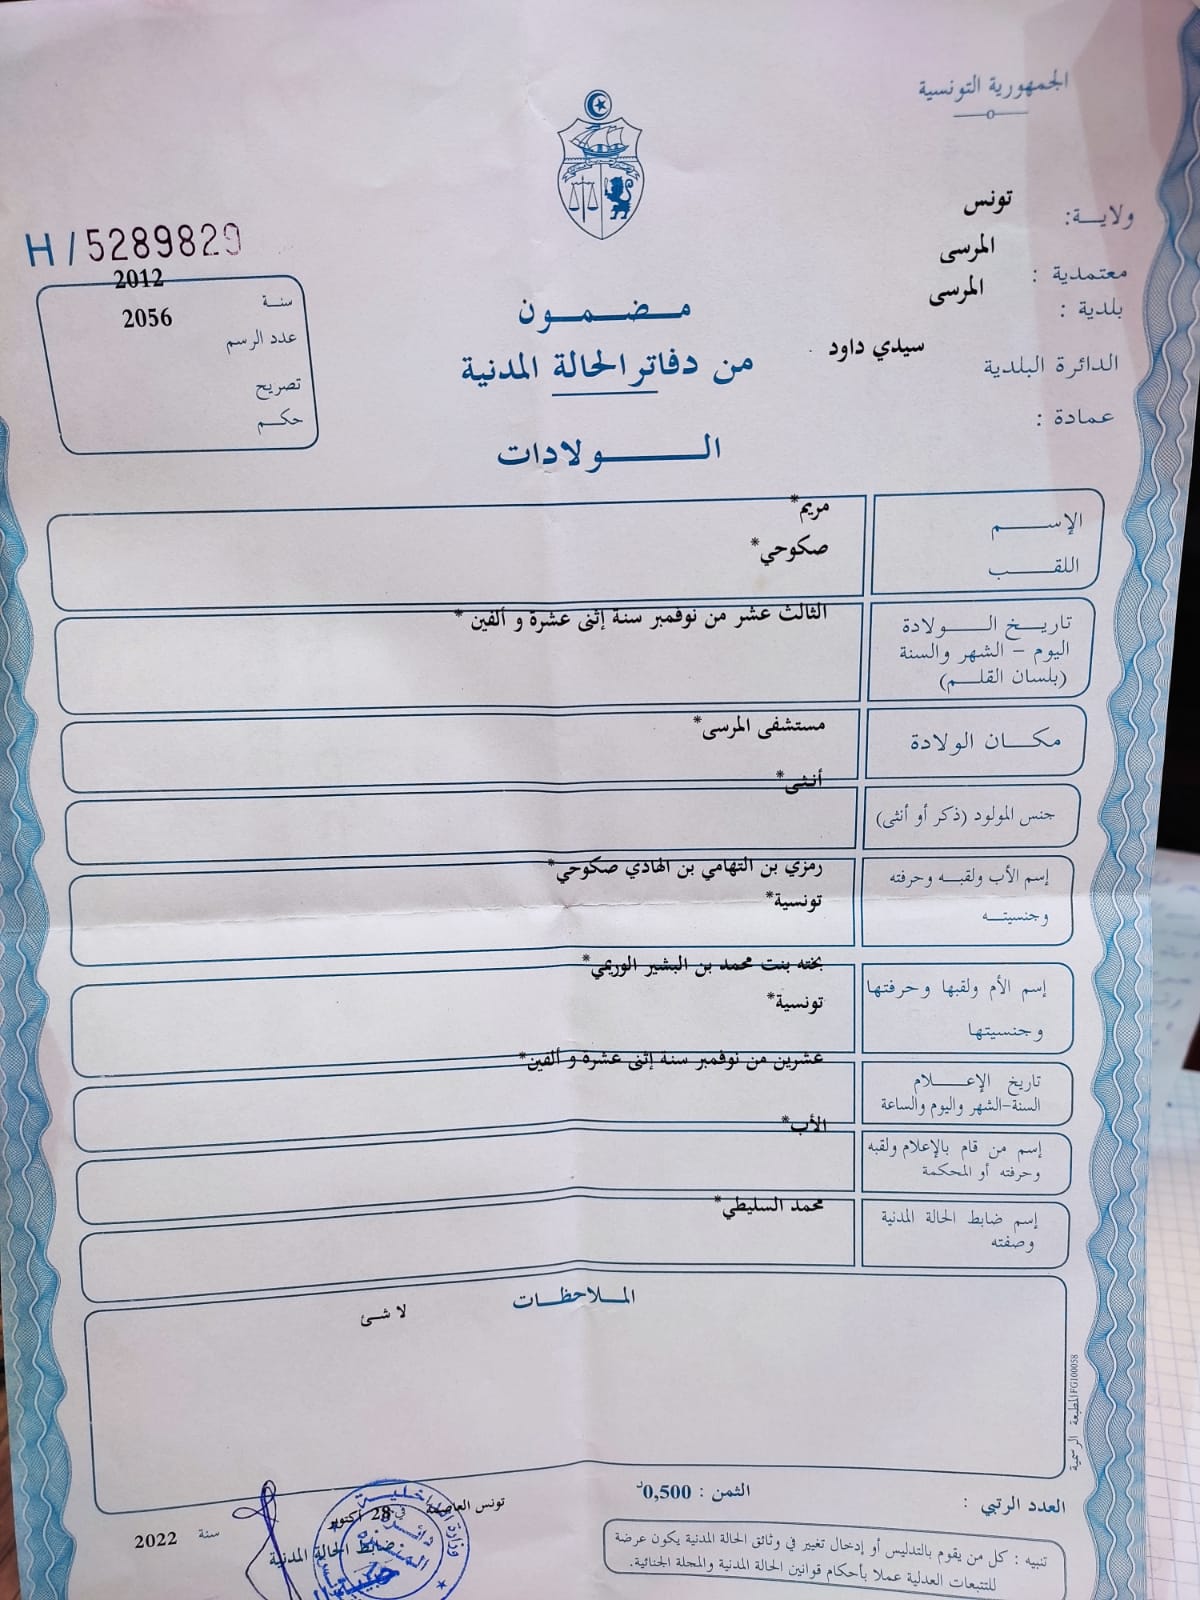 الجمهورية التونسية
ولايــة: تونس
معتمدية : المرسى
بلدية : المرسى
الدائرة البلدية سيدي داود
عمادة :
H/5289829
سنة 2012
عدد الرسم 2056
تصريح
حكم
مضمون
من دفاتر الحالة المدنية
الولادات
الإسم مريم*
اللقب صكوحي*
تاريخ الولادة
اليوم – الشهر والسنة
(بلسان القلم)
الثالث عشر من نوفمبر سنة إثنى عشرة و ألفين *
مكان الولادة مستشفى المرسى*
جنس المولود (ذكر أو أنثى) أنثى*
إسم الأب ولقبه وحرفته
وجنسيته
رمزي بن التهامي بن الهادي صكوحي*
تونسية*
إسم الأم ولقبها وحرفتها
وجنسيتها
بخته بنت محمد بن البشير الوريمي*
تونسية*
تاريخ الإعلام
السنة-الشهر واليوم والساعة
عشرين من نوفمبر سنة إثنى عشرة و ألفين*
إسم من قام بالإعلام ولقبه
وحرفته أو المحكمة
الأب*
إسم ضابط الحالة المدنية
وصفته
محمد السليطي*
الملاحظات
لا شئ
المطبعة الرسمية FG100058
العدد الرتبي :
الثمن : 0,500د
تونس العاصمة في 28 أكتوبر سنة 2022
ضابط الحالة المدنية
وزارة الداخلية
دائرة
تنبيه : كل من يقوم بالتدليس أو إدخال تغيير في وثائق الحالة المدنية يكون عرضة
للتتبعات العدلية عملا بأحكام قوانين الحالة المدنية والمجلة الجنائية.